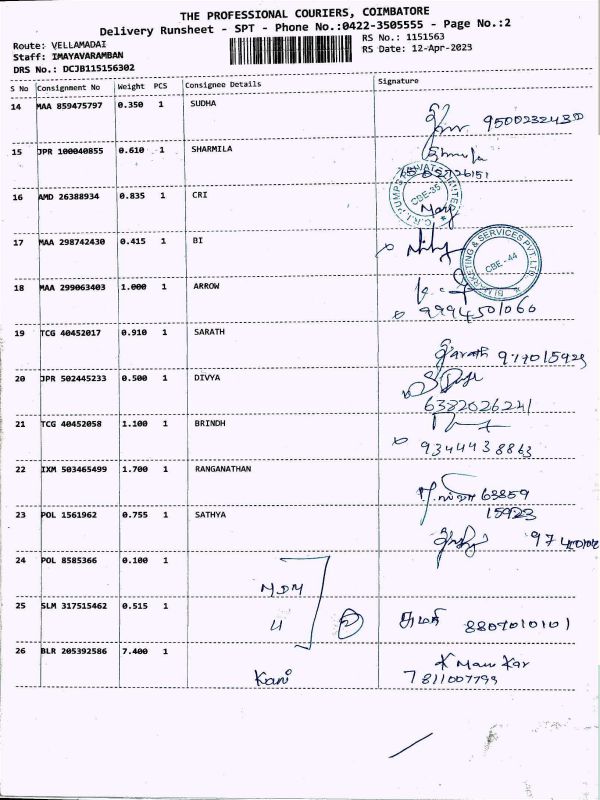 THE PROFESSIONAL COURIERS, COIMBATORE
Delivery Runsheet - SPT - Phone No.:0422-3505555 - Page No.:2
Route: VELLAMADAI
RS No.: 1151563
Staff: IMAYAVARAMBAN
RS Date: 12-Apr-2023
DRS No.: DCJB115156302
S No Consignment No Weight PCS Consignee Details Signature
14 MAA 859475797 0.350 1 SUDHA
15 JPR 100040855 0.610 1 SHARMILA
16 AMD 26388934 0.835 1 CRI
CBE-35
17 MAA 298742430 0.415 1 BI
CBE-44
18 MAA 299063403 1.000 1 ARROW
9994501060
19 TCG 40452017 0.910 1 SARATH
Sarath 977015923
20 JPR 502445233 0.500 1 DIVYA
6382026241
21 TCG 40452058 1.100 1 BRINDH
9344438863
22 IXM 503465499 1.700 1 RANGANATHAN
63859
15923
23 POL 1561962 0.755 1 SATHYA
24 POL 8585366 0.100 1
MDM
25 SLM 317515462 0.515 1
8807010101
26 BLR 205392586 7.400 1
Kani
7811007793